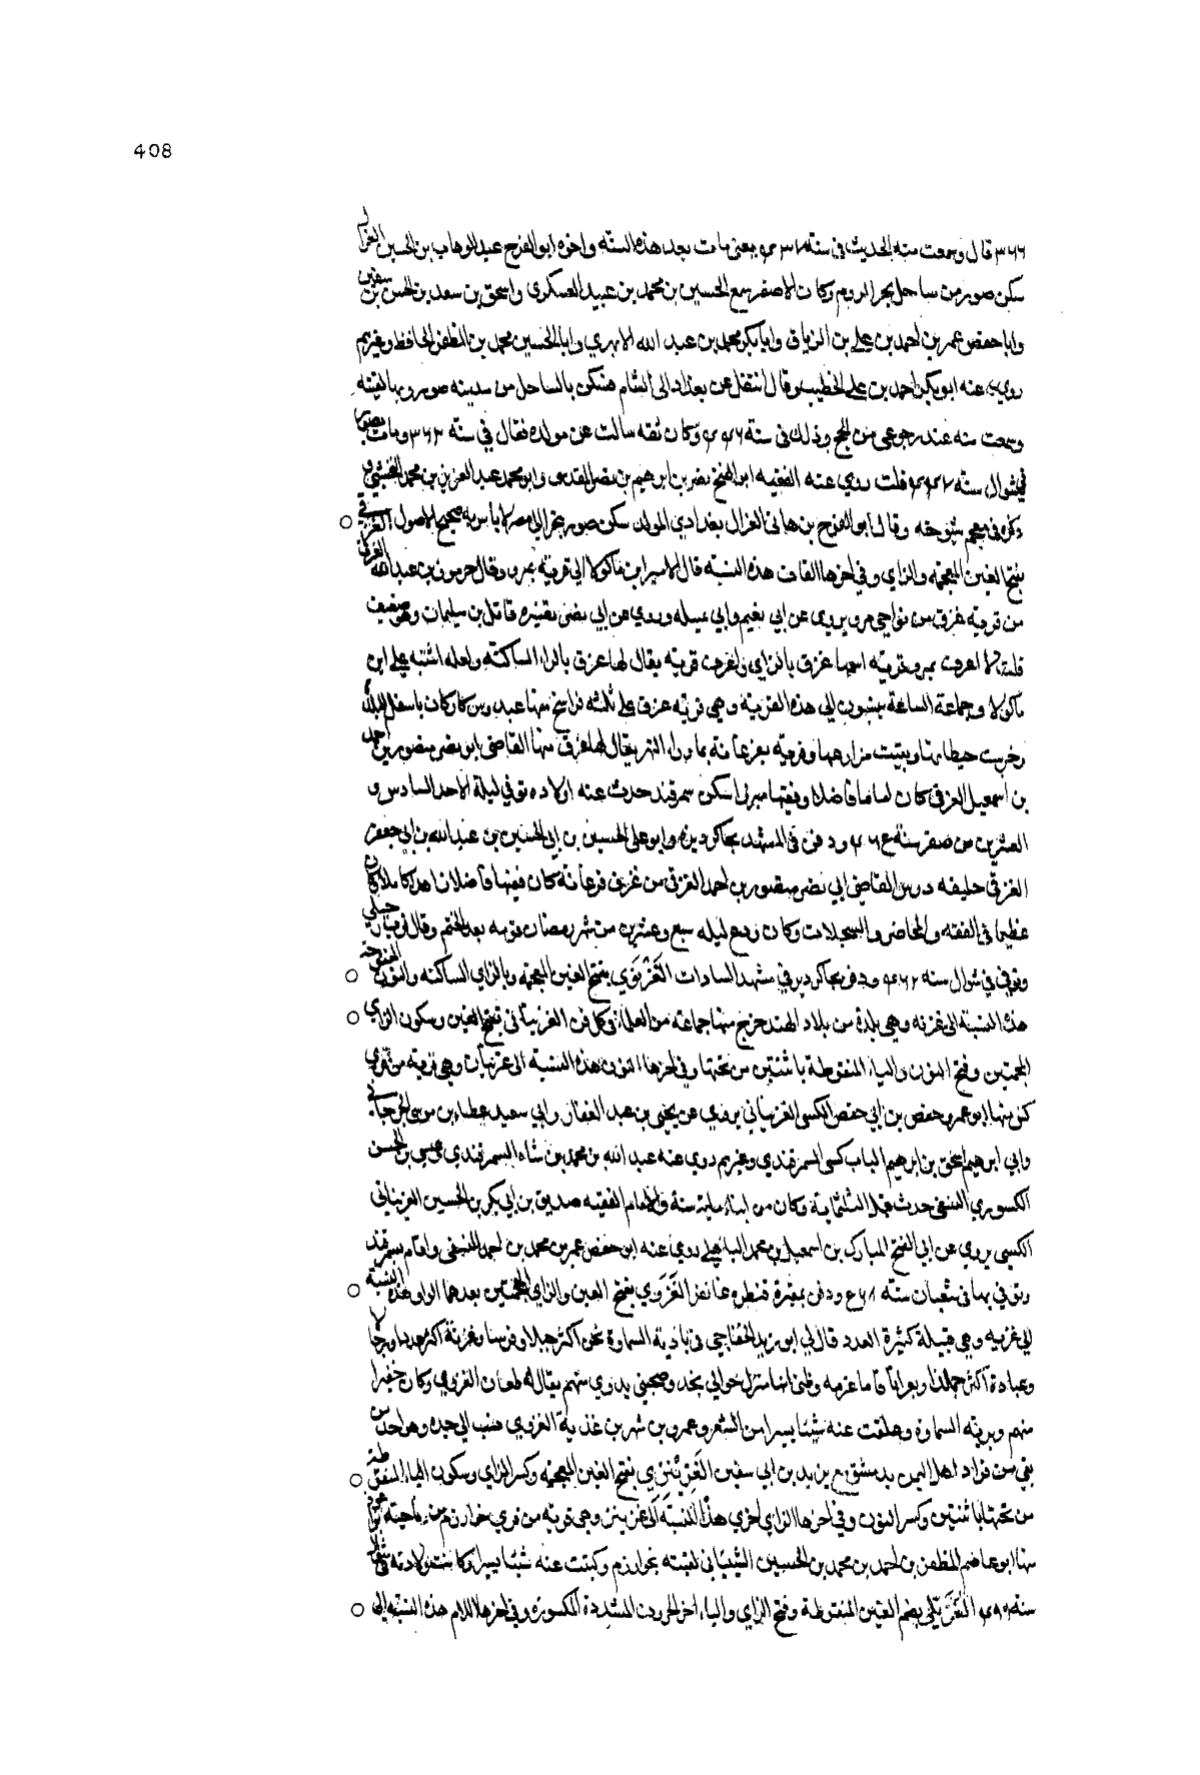 408
٣٦٦ قال وسمعت منه الحديث في سنة يعني مات بعد هذه السنة واخوه ابو الفرج عبد الوهاب بن الحسين الغزال
سكن صور من ساحل بحر الروم وكان الاصغر سمع الحسين بن محمد بن عبيد العسكري واسحق بن سعد بن الحسن بن سفين
وابا حفص عمر بن احمد بن علي بن الزيات وابا بكر محمد بن عبد الله الابهري وابا الحسين محمد بن المظفر الحافظ وغيرهم
روي عنه ابو بكر احمد بن علي الخطيب وقال انتقل عن بغداد الى الشام فسكن بالساحل من مدينة صور وبها لقيته
وسمعت منه عند رجوعي من الحج وذلك في سنة ٤٤٦ وكان ثقه سالت عن مولده فقال في سنة ٣٦٢ ومات بصور
في شوال سنة ٤٤٧ قلت روي عنه الفقيه ابو الفتح نصر بن ابرهيم بن نصر المقدسي وابو محمد عبد العزيز بن محمد النخشبي و
ذكره في معجم شيوخه وقال ابو الفرج بن هاني الغزال بغدادي المولد سكن صور لا باس به صحيح الاصول الغزقي
بفتح الغين المعجمة والزاي وفي اخرها القاف هذه النسبة قال الامير ابن ماكولا الى قرية بمرو وقال جرموز بن عبد الله الغزقي
من قرية غزق من نواحي مرو يروي عن ابي نعيم وابي نميله وروي عن ابي نصر تفسيره مقاتل بن سليمان وهو ضعيف
قلت لا اعرف بمرو قرية اسمها غزق بالزاي واعرف قرية يقال لها غرق بالراء الساكنة ولعله اشتبه على ابن
ماكولا وجماعة الساعة ينسبون الى هذه القرية وهي قرية غرق على ثلثه فراسخ منها
وخربت حيطانها وبقيت مزارعها وقرية بفرغانة بما وراء النهر يقال لها غزق منها القاضي ابو نصر منصور بن احمد
بن اسمعيل الغزقي كان اماما فاضلا وفقيها مبرزا سكن سمرقند حدث عنه اولاده توفي ليلة الاحد السادس و
العشرين من صفر سنة ٤٦٤ ودفن في المشهد بجاكرديزه وابو علي الحسين بن ابي الحسين بن عبد الله بن ابي جعفر
الغزقي خليفه درس القاضي ابي نصر منصور بن احمد الغزقي من غزق فرغانة كان فقيها فاضلا زاهدا كاملا كان
عظيما في الفقه والمحاضر والسجلات وكان ودع ليله سبع وعشرين من شهر رمضان قومه بعد الختم وقال
وتوفي في شوال سنة ٤٦٢ ودفن بجاكرديز في مشهد السادات الغزنوي بفتح الغين المعجمة وبالزاي الساكنه والنون المفتوحة
هذه النسبة الى غزنه وهي بلدة من بلاد الهند خرج منها جماعة من العلماء في كل فن الغزنياني بفتح الغين وسكون الزاي
المعجمتين وفتح النون والياء المنقوطة باثنتين من تحتها وفي اخرها النون هذه النسبة الى غزنيان وهي قرية من قري
كس منها ابو عمرو حفص بن ابي حفص الكسي الغزنياني يروي عن يحيى بن عبد الغفار وابي سعيد عطاء بن موسى الجرجاني
وابي ابرهيم اسحق بن ابرهيم الباب كسي السمرقندي وغيرهم روي عنه عبد الله بن محمد بن شاه السمرقندي وعيسى بن الحسن
الكسوري النسفي حدث قبل الثلثماية وكان من ابناء ماية سنة والامام الفقيه صديق بن ابي بكر بن الحسين الغزنياني
الكسي يروي عن ابي الفتح المبارك بن اسمعيل بن محمد الباهلي روي عنه ابو حفص عمر بن محمد بن احمد النسفي واقام بسمرقند
وتوفي بها في شعبان سنة ودفن بمقبرة قنطرة غاتفر الغزوي بفتح الغين والزاي المعجمتين بعدها الواو هذه النسبة
الى غزيه وهي قبيلة كثيرة العدد قال لي ابو زيد الخفاجي في بادية السماوة نحن اكثر خيلا وفرسا وغزية اكثر عددا ورجالا
وعبادة اكثر جمالا وبعرانا فاما غزيه وظني انها تنزل حوالي نجد وصحبني بدوي منهم يقال له طعان الغزوي وكان خفيرا
منهم وبريته السماوة وعلقت عنه شيئا يسيرا من الشعر وعمرو بن شمر بن غزية الغزوي منسب الى جده وهو احد من
بقي من قواد اهل اليمن بدمشق مع يزيد بن ابي سفين الغزنيزي بفتح الغين المعجمة وكسر الزاي وسكون الياء المنقوطة
من تحتها باثنتين وكسر النون وفي اخرها الزاي اخرى هذه النسبة الى غزنيز وهي قرية من قري خوارزم من ناحية
منها ابو عاصم المظفر بن احمد بن محمد بن الحسين الشيباني لقيته بخوارزم وكتبت عنه شيئا يسيرا وكانت ولادته في
سنة الغزيلي بضم الغين المنقوطة وفتح الزاي والياء اخر الحروف المشددة المكسورة وفي اخرها اللام هذه النسبة الى